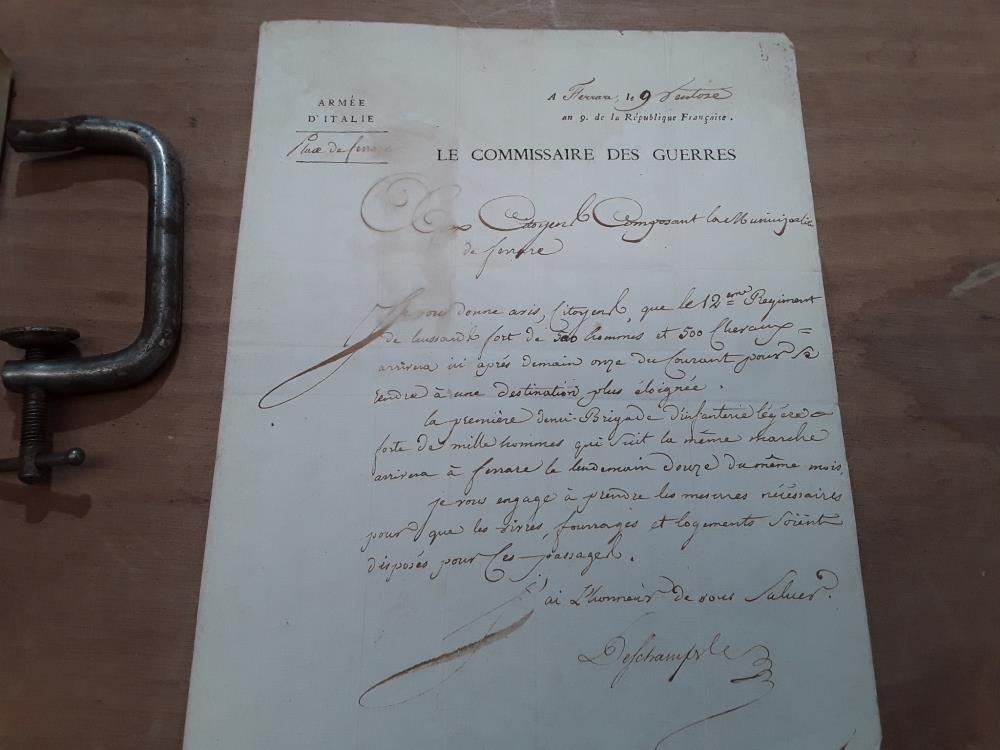 ARMÉE
D'ITALIE
Place de ferrare
A Ferrare, le 9 Ventose
an 9. de la République Française.
LE COMMISSAIRE DES GUERRES
Aux Citoyens Composant la Municipalité
de ferrare
Je vous donne avis, Citoyens, que le 12eme Regiment
de hussards fort de 500 hommes et 500 Chevaux =
arrivera ici après demain onze du Courant pour se
rendre à une destination plus éloignée.
la première demi-Brigade d'infanterie légère
forte de mille hommes qui suit la même marche
arrivera à ferrare le lendemain douze du même mois.
je vous engage à prendre les mesures nécessaires
pour que les vivres, fourrages et logements soient
disposés pour ces passages.
J'ai L'honneur de vous Saluer.
Deschamps